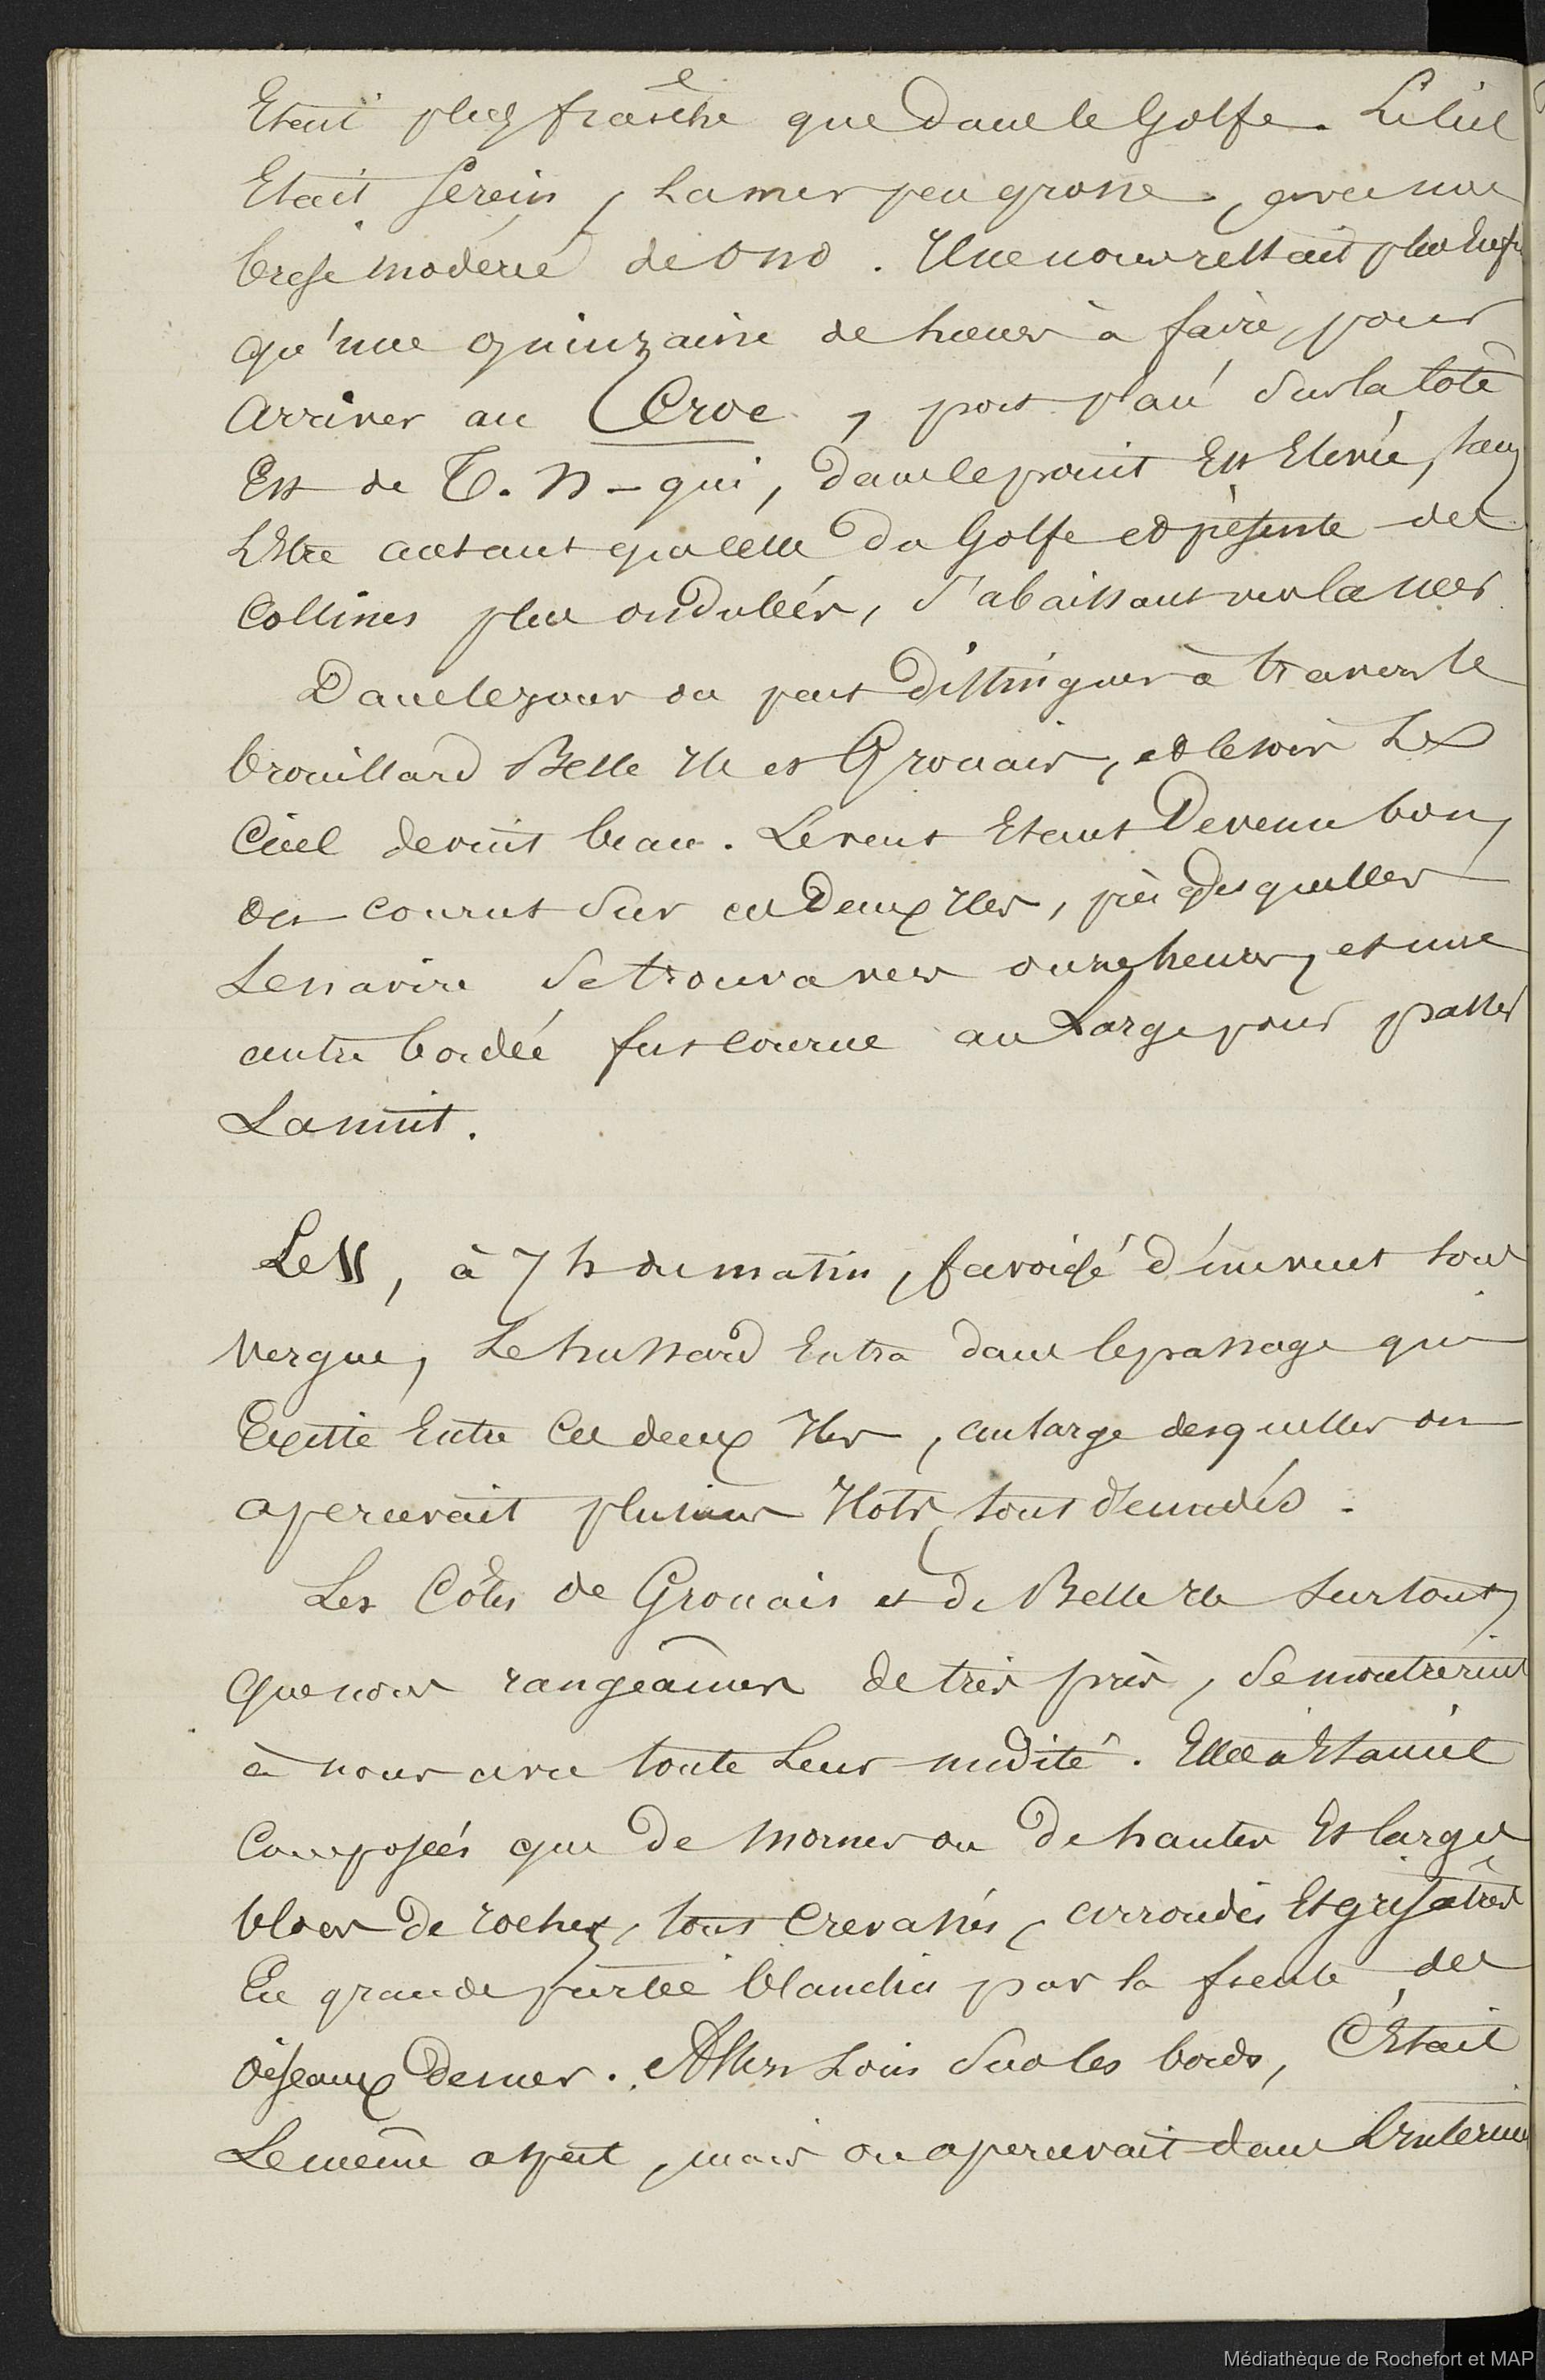 Etait plus fraîche que dans le Golfe. Le Ciel
Etait Serein, La mer peu grosse, avec une
brise modérée de ONO. Il ne nous restait plus
qu'une quinzaine de lieues à faire, pour
arriver au Croc, port placé Sur la Côte
Est de T.N - qui, dans le point Est Elevée, sans
L'Etre autant que celle du Golfe et présente des
Collines plus ondulées, S'abaissant vers la mer.
Dans le jour on peut distinguer à travers le
brouillard Belle Ile et Grouais, et le soir Le
Ciel devint beau. Le vent Etant Devenu bon,
on courut Sur ces Deux Iles, près desquelles
Le navire Se trouva vers onze heures, et une
autre bordée fut courue au Large pour passer
La nuit.
Le 11, à 7 h du matin, favorisé d'un vent sous
Vergue, Le hussard Entra dans le passage qui
Existe Entre Ces deux Iles, au large desquelles on
apercevait plusieurs Ilots tous dénudés.
Les Côtes de Grouais et de Belle Ile Surtout,
Que nous rangeâmes de très près, Se montrèrent
à nous avec toute Leur nudité. Elles n'Etaient
Composées que de mornes ou De hautes Et larges
blocs de roches, tous Crevassés, arrondis Et grisâtres
En grande partie blanchis par la fiente des
oiseaux De mer. Assez Loin Sur les bords, C'Etait
Le même aspect, mais on apercevait dans L'intérieur